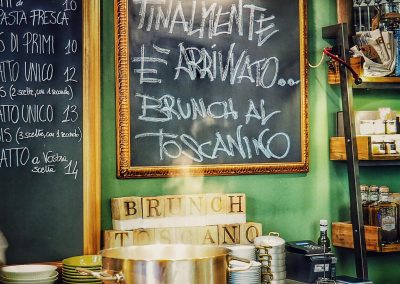 PASTA FRESCA
DI PRIMI 10
ATTO UNICO 12
(2 scelte, con 1 secondo)
ATTO UNICO 13
(3 scelte, con 1 secondo)
ATTO a Vostra
scelta 14
FINALMENTE
È ARRIVATO...
BRUNCH AL
TOSCANINO
BRUNCH
TOSCANO